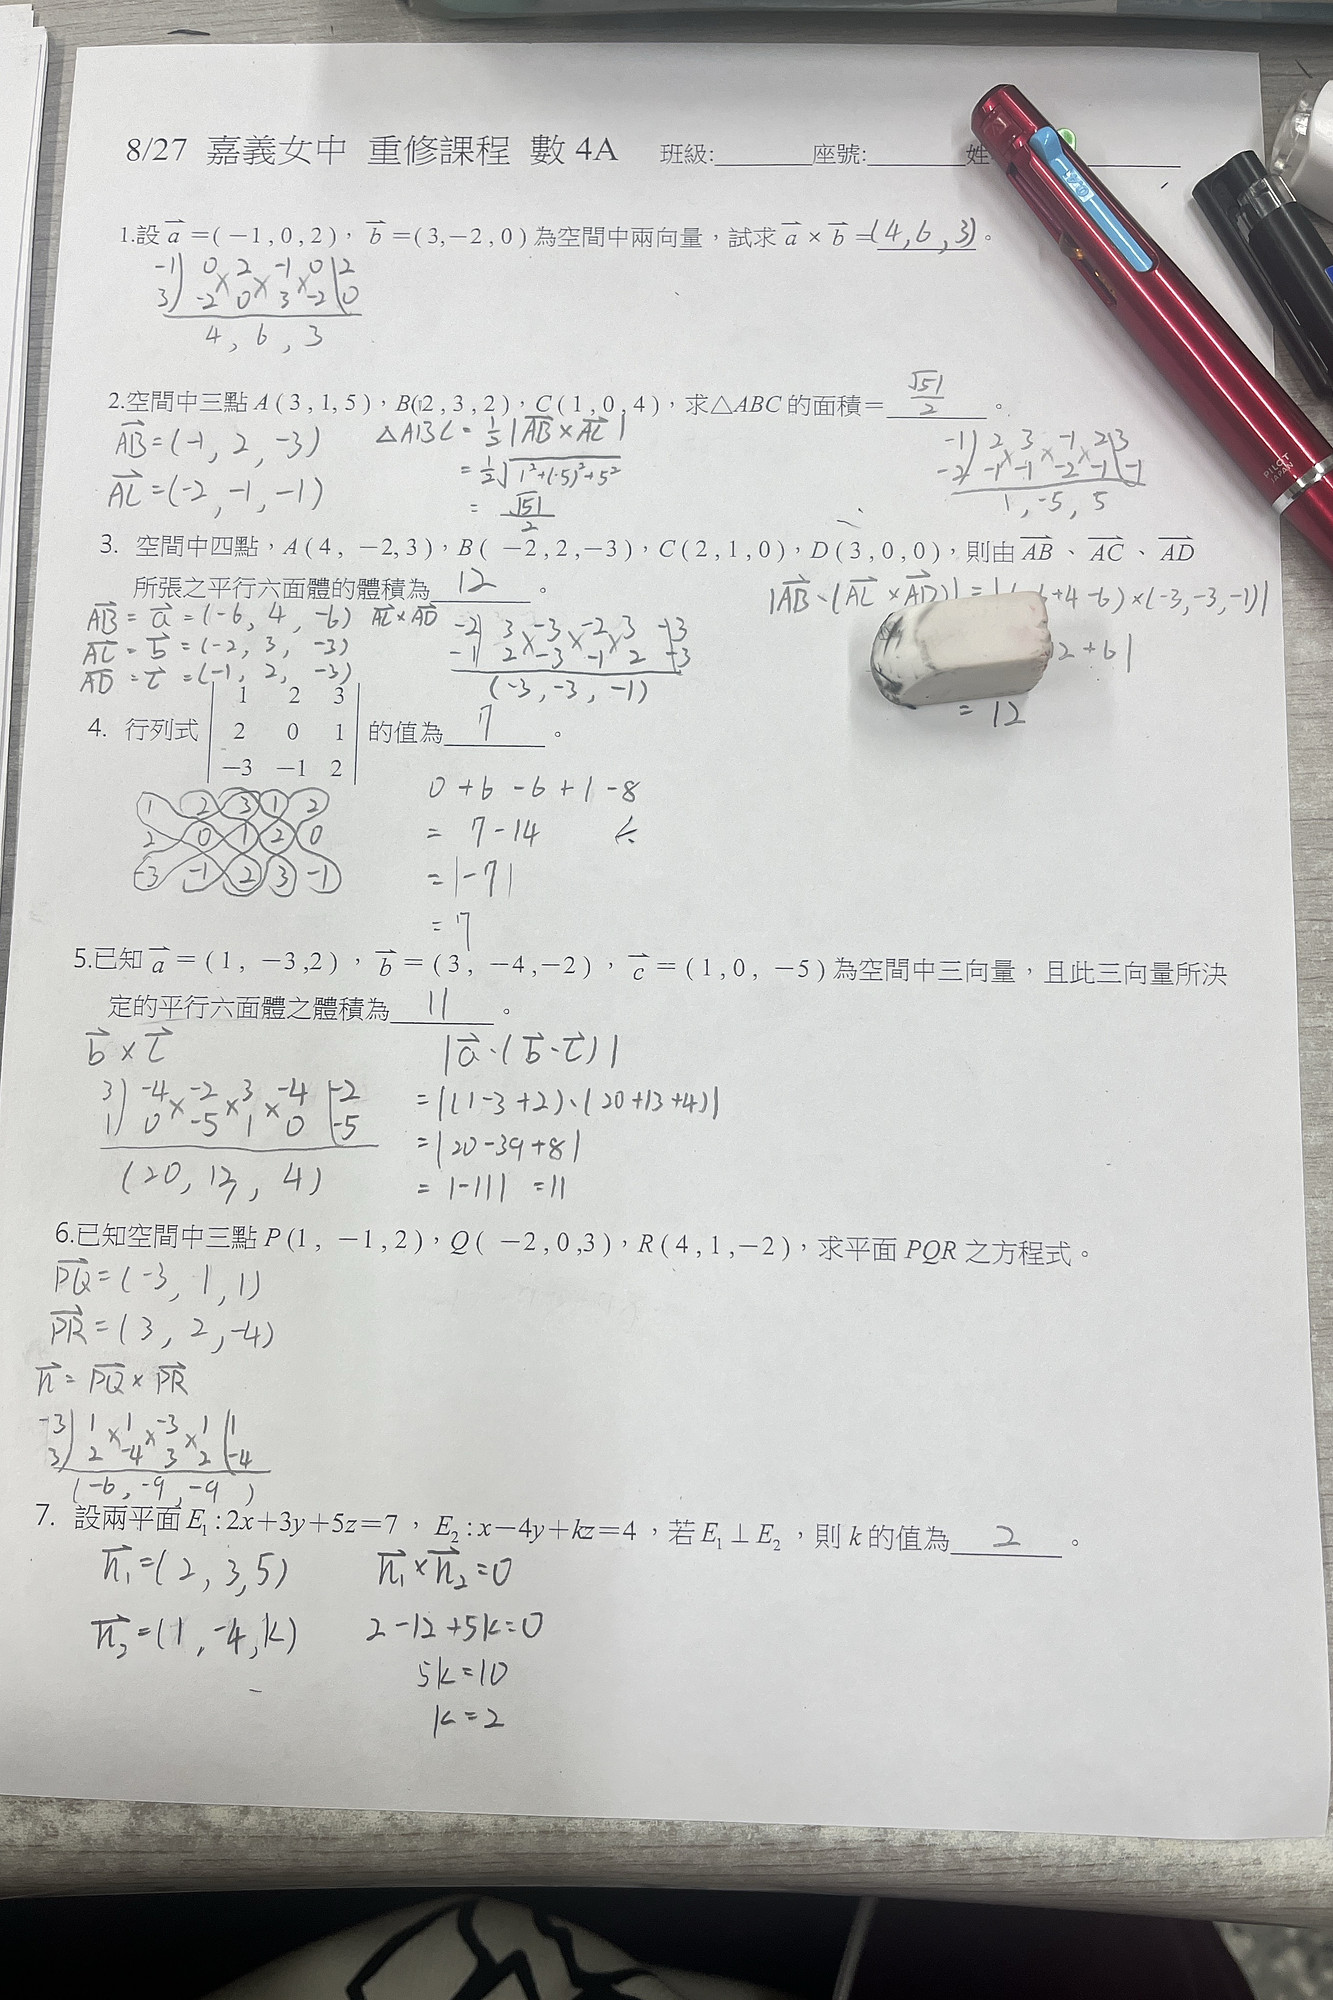 8/27 嘉義女中 重修課程 數 4A 班級:________座號:________姓
1.設 a⃗ =(−1,0,2), b⃗ =(3,−2,0)為空間中兩向量,試求 a⃗ × b⃗ =(4,6,3)。
-1) 0 2 -1 0 (2
3) -2 0 3 -2 (0
4, 6, 3
2.空間中三點 A(3,1,5),B(2,3,2),C(1,0,4),求△ABC 的面積= √51/2 。
AB⃗ =(-1, 2, -3)
AC⃗ =(-2, -1, -1)
△ABC = 1/2 |AB⃗ × AC⃗|
= 1/2 √(1²+(-5)²+5²)
= √51/2
-1) 2 3 -1 2 (3
-2) -1 -1 -2 -1 (-1
1, -5, 5
3. 空間中四點,A(4, −2,3),B( −2,2,−3),C(2,1,0),D(3,0,0),則由 AB⃗、AC⃗、AD⃗
所張之平行六面體的體積為 12 。
AB⃗ = a⃗ = (-6, 4, -6)
AC⃗ = b⃗ = (-2, 3, -3)
AD⃗ = c⃗ = (-1, 2, -3)
AC⃗ × AD⃗
-2) 3 -3 -2 3 (-3
-1) 2 -3 -1 2 (-3
(-3, -3, -1)
|AB⃗ · (AC⃗ × AD⃗)| = |( 6+4-6) × (-3,-3,-1)|
2+6|
= 12
4. 行列式 | 1 2 3 | 的值為 7 。
| 2 0 1 |
| −3 −1 2 |
1 2 3 1 2
2 0 1 2 0
-3 -1 2 3 -1
0 + 6 - 6 + 1 - 8
= 7 - 14
= |-7|
= 7
5.已知 a⃗ = (1, −3,2), b⃗ = (3, −4,−2), c⃗ = (1,0, −5)為空間中三向量,且此三向量所決
定的平行六面體之體積為 11 。
b⃗ × c⃗
3) -4 -2 3 -4 (-2
1) 0 -5 1 0 (-5
(20, 13, 4)
|a⃗ · (b⃗ · c⃗)|
= |(1-3+2)·(20+13+4)|
= |20-39+8|
= |-11| = 11
6.已知空間中三點 P(1, −1,2),Q( −2,0,3),R(4,1,−2),求平面 PQR 之方程式。
PQ⃗ = (-3, 1, 1)
PR⃗ = (3, 2, -4)
n⃗ = PQ⃗ × PR⃗
-3) 1 1 -3 1 (1
3) 2 -4 3 2 (-4
(-6, -9, -9 )
7. 設兩平面 E₁:2x+3y+5z=7, E₂:x−4y+kz=4,若 E₁⊥E₂,則 k 的值為 2 。
n₁⃗ = (2, 3, 5)
n₂⃗ = (1, -4, k)
n₁⃗ × n₂⃗ = 0
2 - 12 + 5k = 0
5k = 10
k = 2
PILOT
JAPAN